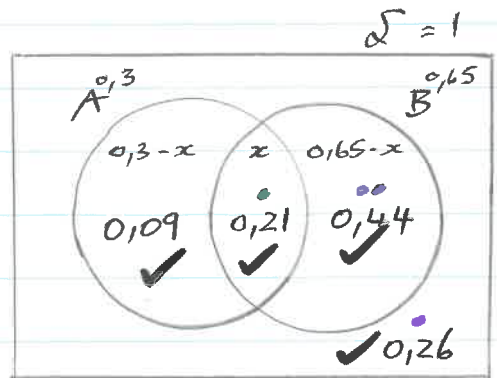 S = 1
A 0,3
B 0,65
0,3-x x 0,65-x
0,09 0,21 0,44
0,26